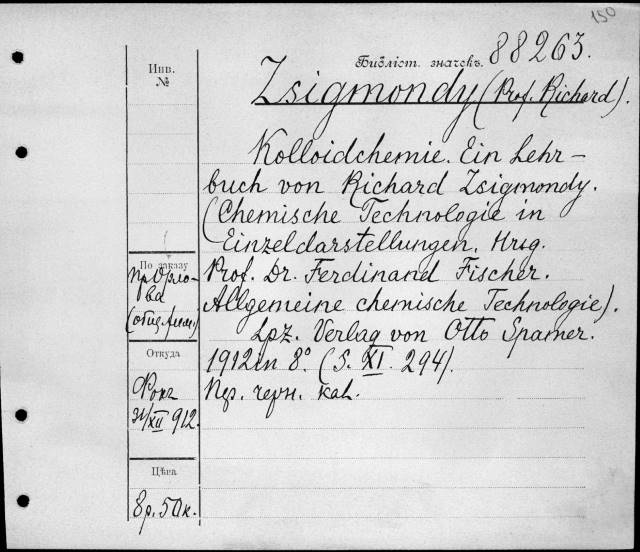 150
Библіот. значекъ. 88263.
Инв. №
Zsigmondy (Prof. Richard).
Kolloidchemie. Ein Lehr-
buch von Richard Zsigmondy.
(Chemische Technologie in
Einzeldarstellungen. Hrsg.
Prof. Dr. Ferdinand Fischer.
Allgemeine chemische Technologie).
Lpz. Verlag von Otto Spamer.
1912 in 8° (S. XI. 294).
черн.
По заказу
пр. Орло-
ва
Откуда
31/XII 912.
Цѣна
8 р. 50 к.